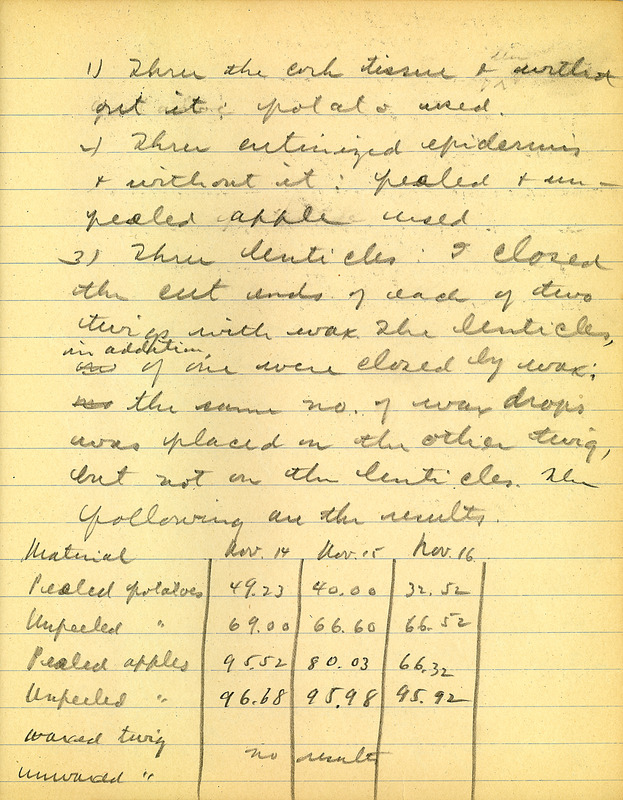 1) Thru the cork tissue & without
out it: potato used.
2) Thru cutinized epidermis
& without it: pealed & un-
pealed apple used
3) Thru lenticles: I closed
the cut ends of each of two
twigs with wax. The lenticles,
in addition,
of one were closed by wax;
the same no. of wax drops
was placed on the other twig,
but not on the lenticles. The
following are the results.
Material Nov. 14 Nov. 15 Nov. 16
Pealed potatoes 49.23 40.00 32.52
Unpeeled " 69.00 66.60 66.52
Pealed apples 95.52 80.03 66.32
Unpeeled " 96.68 95.98 95.92
waxed twig
no result
unwaxed "